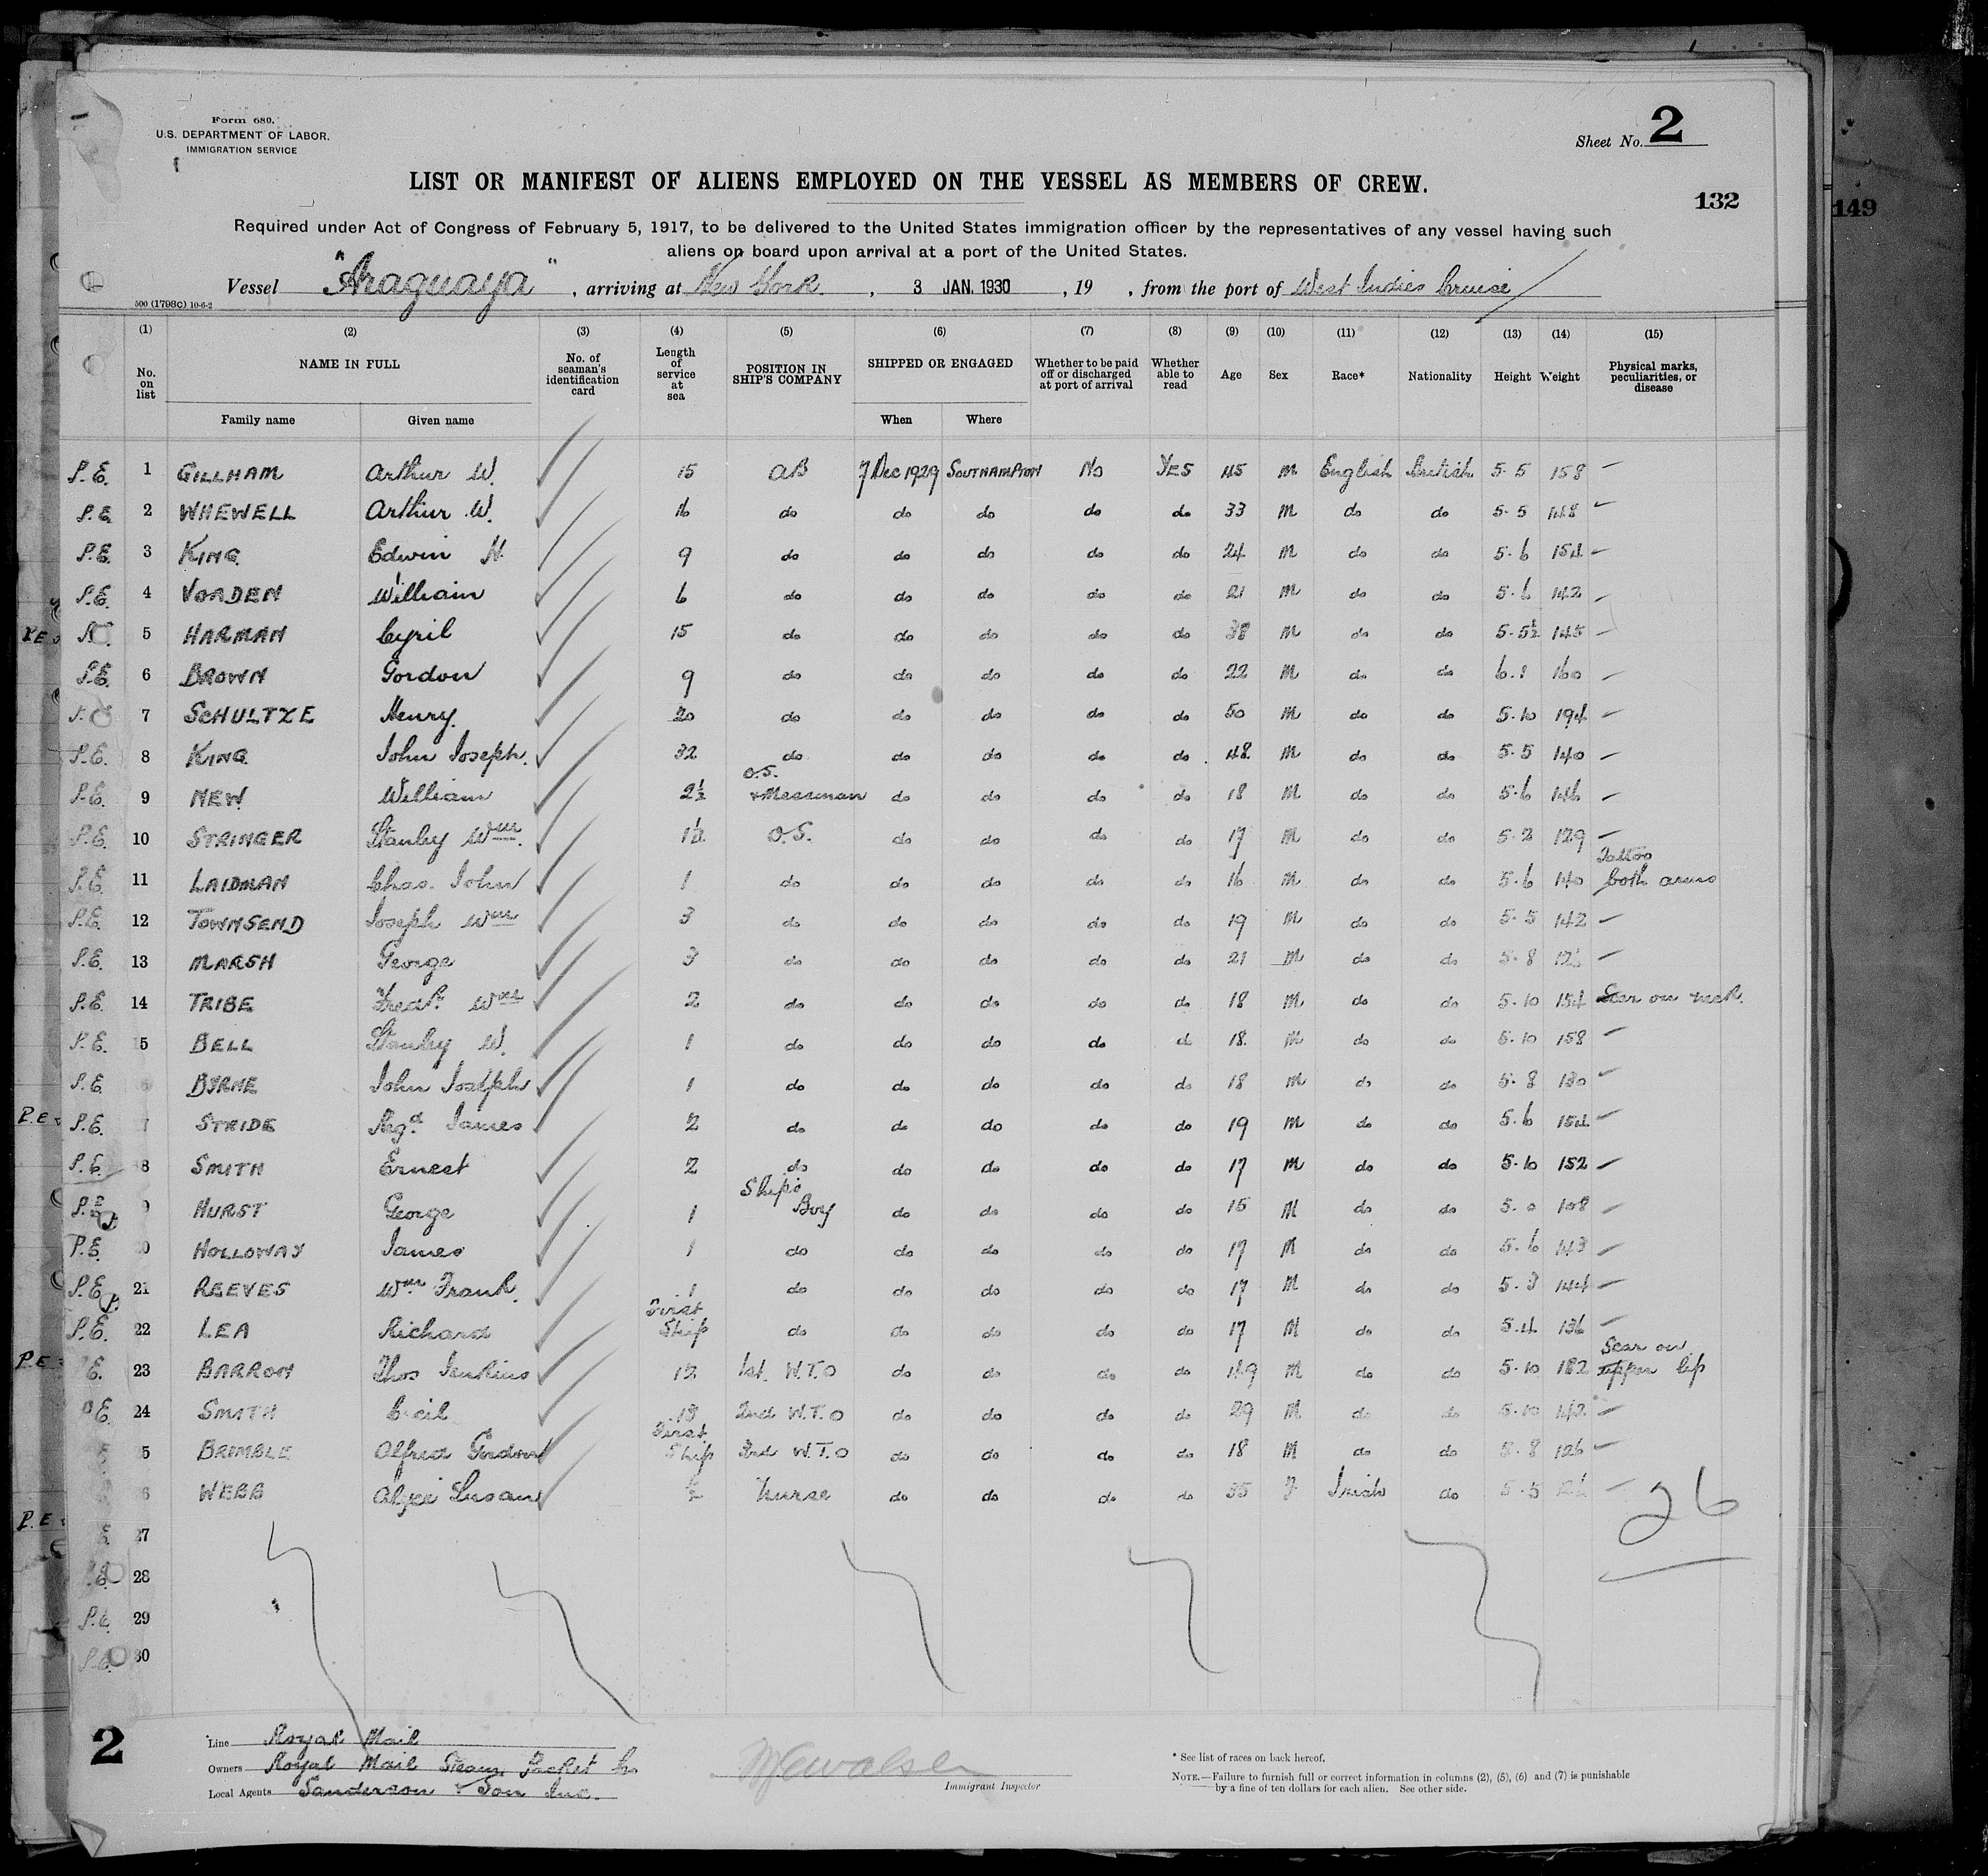 Form 680.
U.S. DEPARTMENT OF LABOR.
IMMIGRATION SERVICE
Sheet No. 2
LIST OR MANIFEST OF ALIENS EMPLOYED ON THE VESSEL AS MEMBERS OF CREW.
132
149
Required under Act of Congress of February 5, 1917, to be delivered to the United States immigration officer by the representatives of any vessel having such
aliens on board upon arrival at a port of the United States.
Vessel "Araguaya", arriving at New York, 3 JAN. 1930, 19 , from the port of West Indies Cruise
500 (1798C) 10-6-2
(1) (2) (3) (4) (5) (6) (7) (8) (9) (10) (11) (12) (13) (14) (15)
No. on list NAME IN FULL Family name Given name No. of seaman's identification card Length of service at sea POSITION IN SHIP'S COMPANY SHIPPED OR ENGAGED When Where Whether to be paid off or discharged at port of arrival Whether able to read Age Sex Race* Nationality Height Weight Physical marks, peculiarities, or disease
P.E. 1 GILLHAM Arthur W. 15 AB 7 Dec 1929 SOUTHAMPTON No YES 45 M English British 5.5 158 —
P.E. 2 WHEWELL Arthur W. 16 do do do do do 33 M do do 5.5 148 —
P.E. 3 KING Edwin H. 9 do do do do do 24 M do do 5.6 154 —
P.E. 4 VORDEN William 6 do do do do do 21 M do do 5.6 142 —
5 HARMAN Cyril 15 do do do do do 38 M do do 5.5½ 145 —
P.E. 6 BROWN Gordon 9 do do do do do 22 M do do 6.1 160 —
7 SCHULTZE Henry. 20 do do do do do 50 M do do 5.10 194 —
P.E. 8 KING John Joseph. 32 do do do do do 48 M do do 5.5 140 —
P.E. 9 NEW William 2½ O.S. & Messman do do do do 18 M do do 5.6 146 —
P.E. 10 STRINGER Stanley Wm. 1½ O.S. do do do do 17 M do do 5.2 129 —
P.E. 11 LAIDMAN Chas. John 1 do do do do do 16 M do do 5.6 140 Tattoo both arms
P.E. 12 TOWNSEND Joseph Wm 3 do do do do do 19 M do do 5.5 142 —
P.E. 13 MARSH George 3 do do do do do 21 M do do 5.8 —
P.E. 14 TRIBE Fredk. Wm 2 do do do do do 18 M do do 5.10 154 Scar on neck.
P.E. 15 BELL Stanley W. 1 do do do do do 18 M do do 5.10 158 —
P.E. BYRNE John Joseph 1 do do do do do 18 M do do 5.8 130 —
P.E. STRIDE Regd. James 2 do do do do do 19 M do do 5.6 154 —
P.E. 8 SMITH Ernest 2 do do do do do 17 M do do 5.10 152 —
9 HURST George 1 Ship's Boy do do do do 15 M do do 5.0 108 —
P.E. 20 HOLLOWAY James 1 do do do do do 17 M do do 5.6 143 —
P.E. 21 REEVES Wm Frank. 1 do do do do do 17 M do do 5.3 144 —
P.E. 22 LEA Richard First Ship do do do do do 17 M do do 5.4 136 —
E. 23 BARRON Thos Jenkins 12 1st. W.T.O do do do do 49 M do do 5.10 182 Scar on upper lip
E. 24 SMITH Cecil 13 2nd W.T.O do do do do 29 M do do 5.10 142 —
5 BRIMBLE Alfred Gordon First Ship 3rd W.T.O do do do do 18 M do do 5.8 126 —
6 WEBB Alice Susan ½ Nurse do do do do 35 F Irish do 5.5 —
26
27
28
P.E. 29
30
2
Line Royal Mail
Owners Royal Mail Steam Packet Co
Local Agents Sanderson & Son Inc.
Immigrant Inspector
* See list of races on back hereof.
NOTE.—Failure to furnish full or correct information in columns (2), (5), (6) and (7) is punishable
by a fine of ten dollars for each alien. See other side.